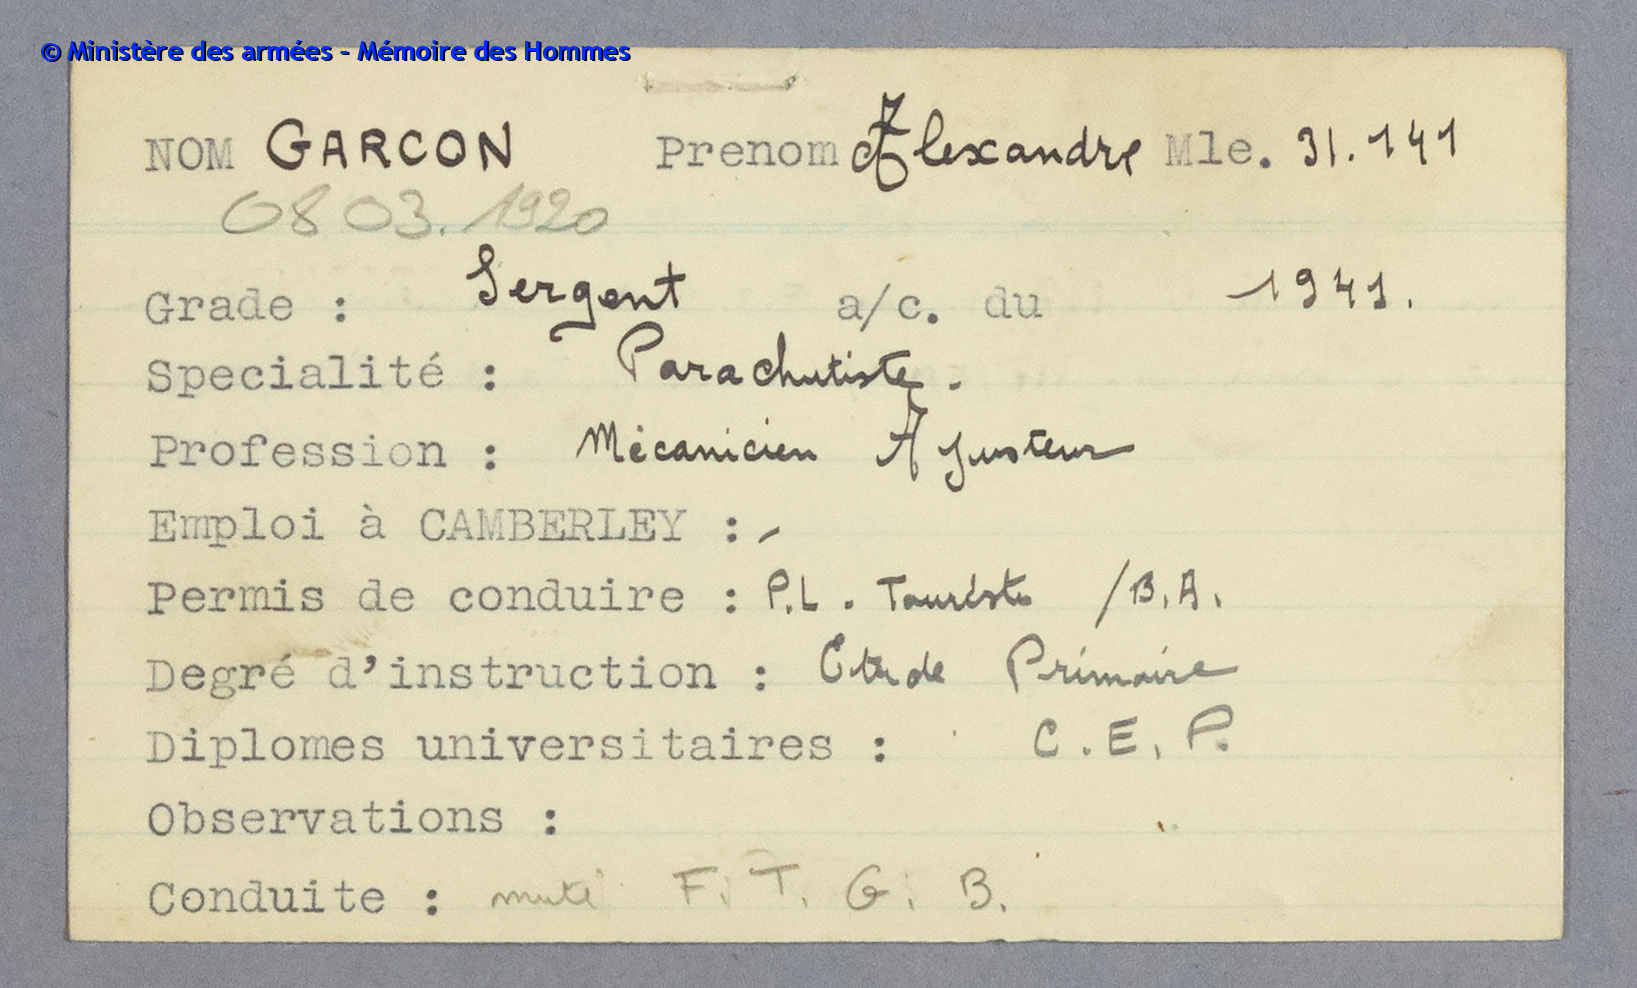 © Ministère des armées - Mémoire des Hommes
NOM GARCON Prenom Alexandre Mle. 31.141
08 03. 1920
Grade : Sergent a/c. du 1941.
Specialité : Parachutiste.
Profession : Mécanicien Ajusteur
Emploi à CAMBERLEY : -
Permis de conduire : P.L. Touriste / B.A.
Degré d'instruction : Etude Primaire
Diplomes universitaires : C.E.P.
Observations :
Conduite : muté F.T.G.B.